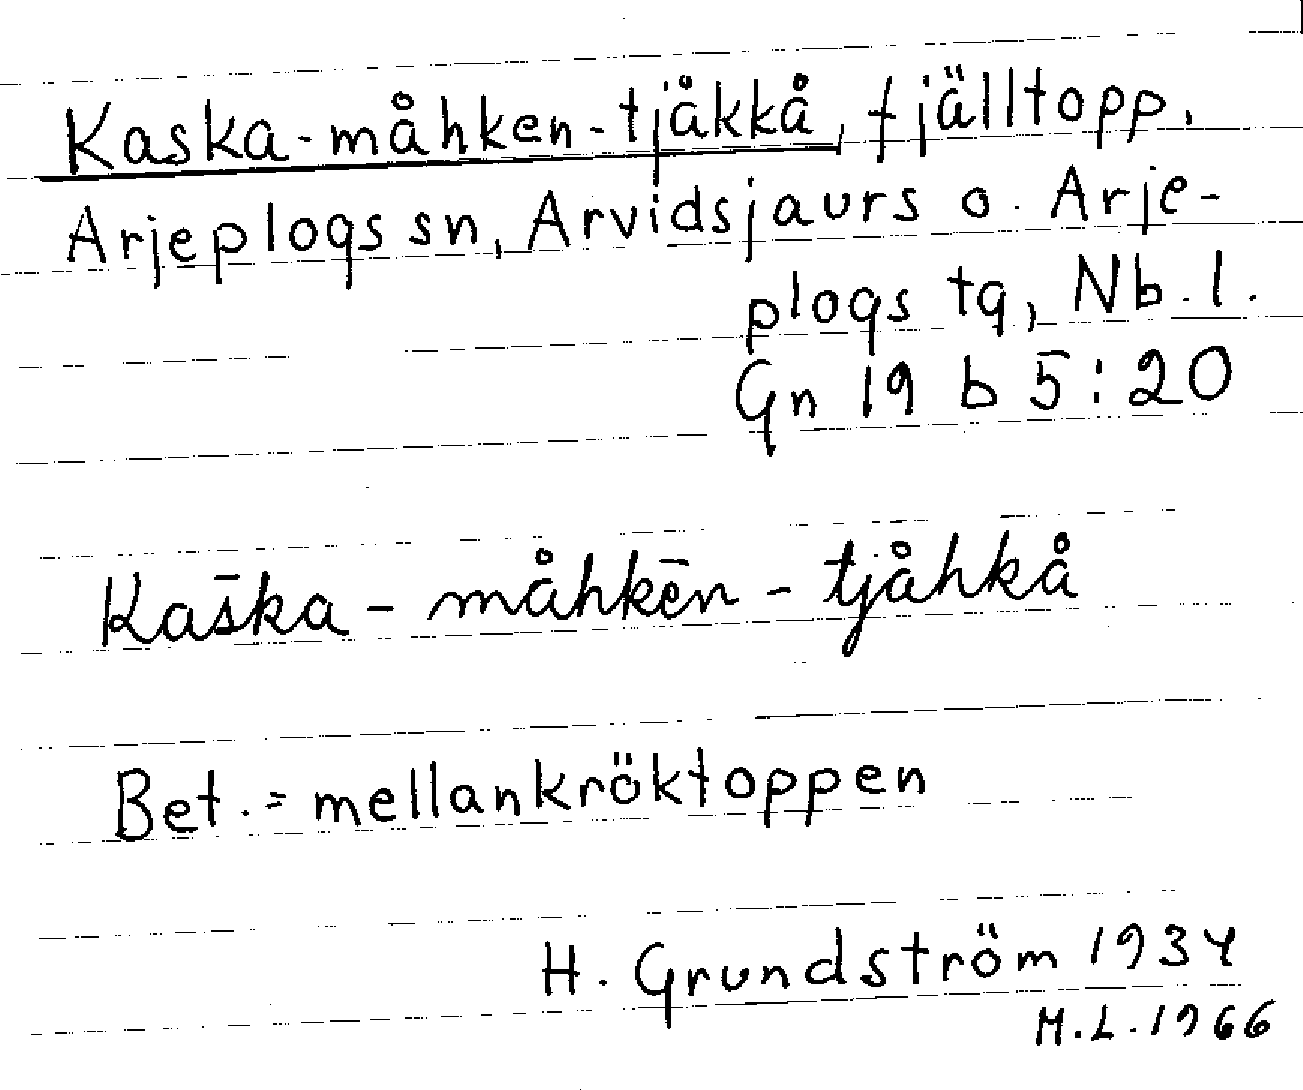 Kaska-måhken-tjåkkå, fjälltopp,
Arjeplogs sn, Arvidsjaurs o. Arje-
plogs tg, Nb. l.
Gn 19 b 5:20
Kas̄ka - måhkēn - tjåhkå
Bet. = mellankröktoppen
H. Grundström 1934
M.L. 1966